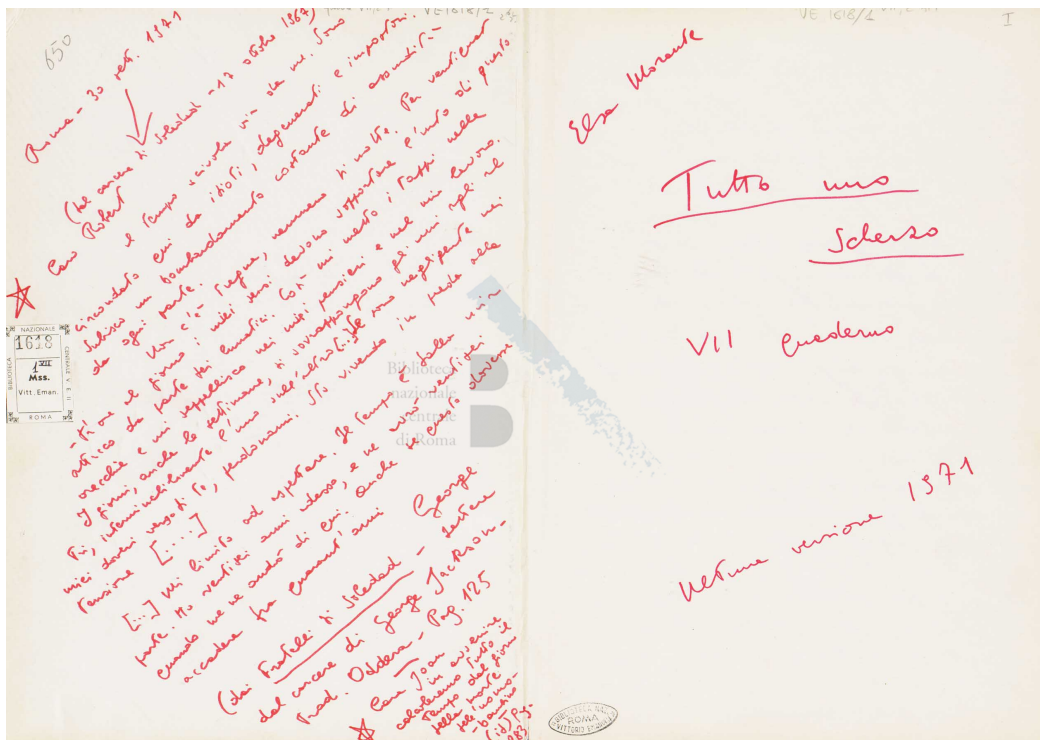 650
VE 1618/2
Roma - 30 sett. 1971
(dal carcere di Soledad - 17 ottobre 1967)
Caro Robert
il tempo scivola via da me. Sono
circondato qui da idioti, degenerati e impostori.
Subisco un bombardamento costante di assurdità
da ogni parte.
Non c'è tregua, nemmeno di notte. Per ventiquattr'
ore al giorno i miei sensi devono sopportare l'urto di questo
attacco da parte dei lunatici. Così mi metto i tappi nelle
orecchie e mi seppellisco nei miei pensieri e nel mio lavoro.
I giorni, anche le settimane, si sovrappongono gli uni agli al
tri, interminabilmente l'uno sull'altro. Se sono negligente nei
miei doveri verso di te, perdonami. Sto vivendo in preda alla
tensione [.....]
[...] Mi limito ad aspettare. Il tempo è dalla mia
parte. Ho ventisei anni adesso, e ne avrò ventisei
quando me ne andrò di qui. anche se questo dovesse
accadere fra quarant'anni
George
(dai Fratelli di Soledad - Lettere
dal carcere di George Jackson -
Trad. Oddera - Pag. 125
Cara Joan
In avvenire
calcoleremo tutto il
tempo dal giorno
della morte
dell'uomo-
-bambino
(id.) pag.
BIBLIOTECA
NAZIONALE
CENTRALE V. E. II
1618
1 XII
Mss.
Vitt. Eman.
ROMA
Biblioteca
nazionale
centrale
di Roma
VE 1618/1
I
Elsa Morante
Tutto uno
Scherzo
VII quaderno
Ultima versione 1971
BIBLIOTECA NAZ.
ROMA
VITTORIO EMANUELE